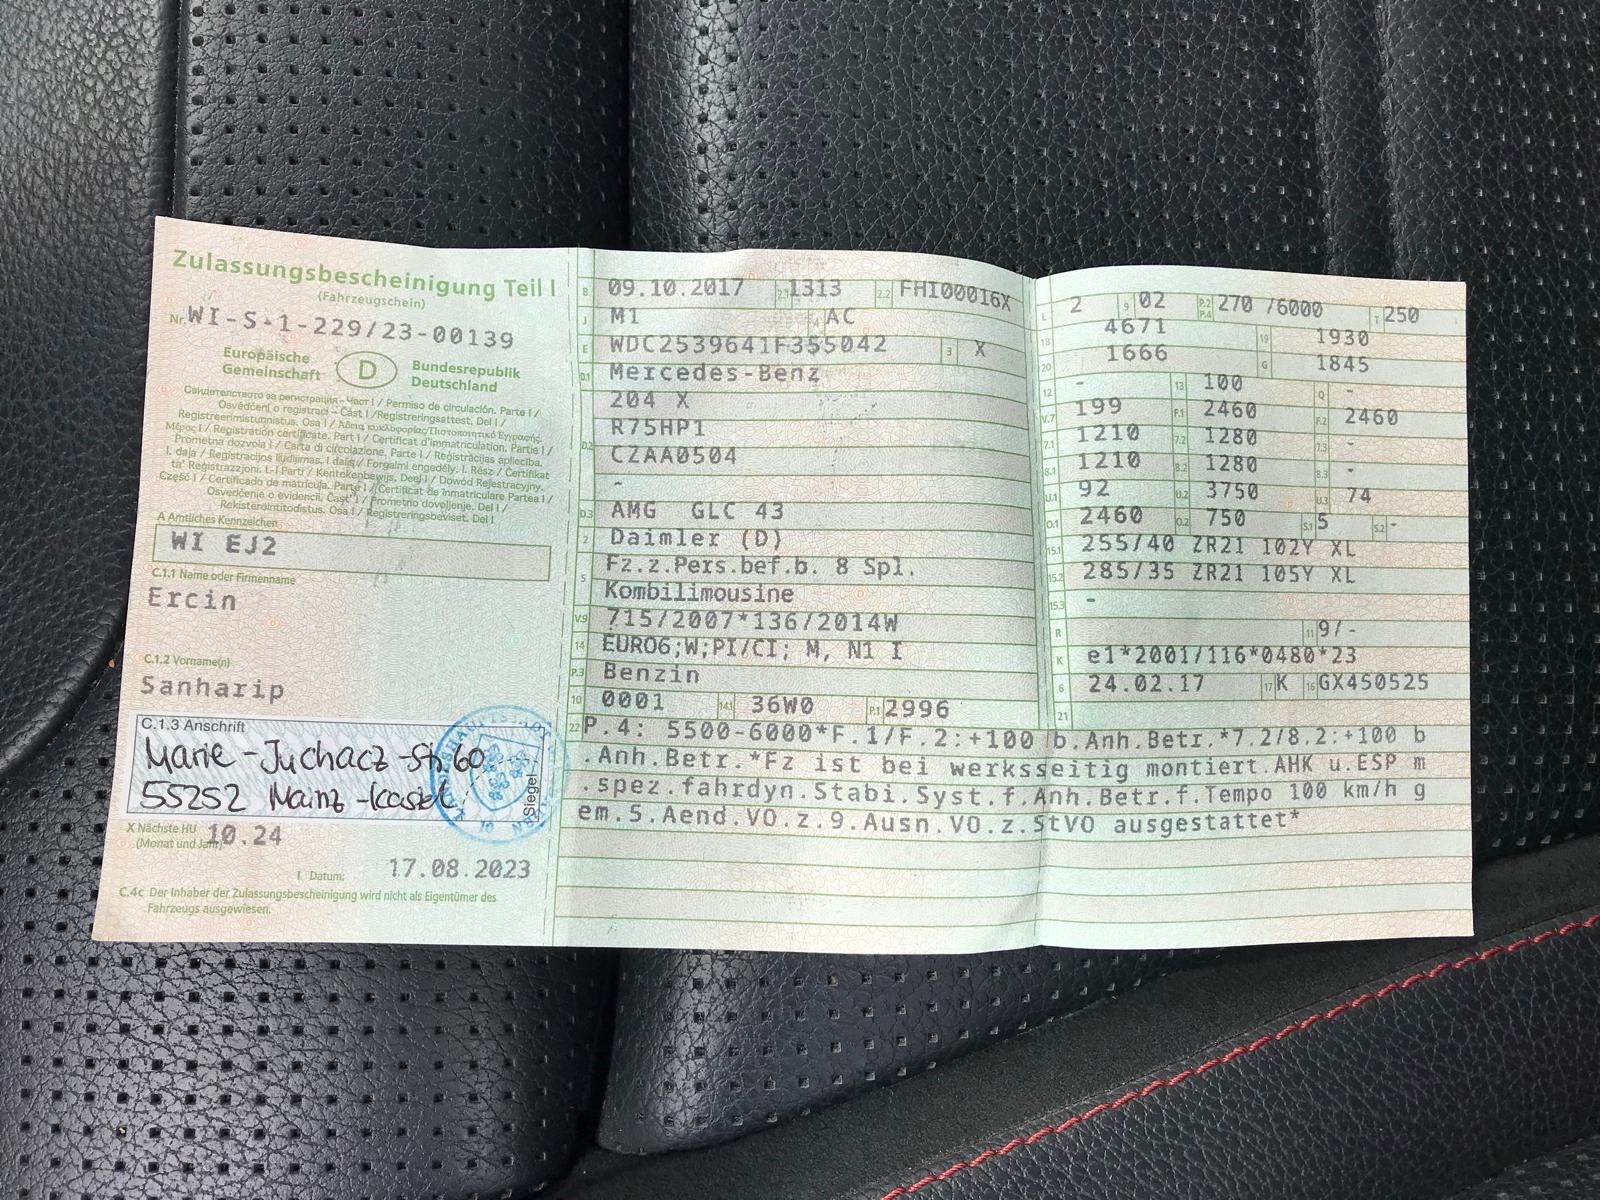 Zulassungsbescheinigung Teil I
(Fahrzeugschein)
Nr. WI-S-1-229/23-00139
Europäische Gemeinschaft
D
Bundesrepublik Deutschland
Свидетелството за регистрация - Част I / Permiso de circulación. Parte I /
Osvědčení o registraci - Část I / Registreringsattest. Del I /
Registreerimistunnistus. Osa I / Άδεια κυκλοφορίας/Πιστοποιητικό Εγγραφής.
Μέρος I / Registration certificate. Part I / Certificat d'immatriculation. Partie I /
Prometna dozvola I / Carta di circolazione. Parte I / Reģistrācijas apliecība.
I. daļa / Registracijos liudijimas. I dalis / Forgalmi engedély. I. Rész / Ċertifikat
ta' Reġistrazzjoni. L-I Parti / Kentekenbewijs. Deel I / Dowód Rejestracyjny.
Część I / Certificado de matrícula. Parte I / Certificat de înmatriculare Partea I /
Osvedčenie o evidencii. Časť I / Prometno dovoljenje. Del I /
Rekisteröintitodistus. Osa I / Registreringsbeviset. Del I
A Amtliches Kennzeichen
WI EJ2
C.1.1 Name oder Firmenname
Ercin
C.1.2 Vorname(n)
Sanharip
C.1.3 Anschrift
Marie-Juchacz-Str. 60
55252 Mainz-Kastel
Siegel
X Nächste HU 10.24
(Monat und Jahr)
I Datum: 17.08.2023
C.4c Der Inhaber der Zulassungsbescheinigung wird nicht als Eigentümer des
Fahrzeugs ausgewiesen.
B 09.10.2017 2.1 1313 2.2 FHI00016X
J M1 4 AC
E WDC2539641F355042 3 X
D.1 Mercedes-Benz
204 X
D.2 R75HP1
CZAA0504
-
D.3 AMG GLC 43
2 Daimler (D)
5 Fz.z.Pers.bef.b. 8 Spl.
Kombilimousine
V.9 715/2007*136/2014W
14 EURO6;W;PI/CI; M, N1 I
P.3 Benzin
10 0001 14.1 36W0 P.1 2996
L 2 9 02 P.2 P.4 270 /6000 T 250
18 4671 19 1930
20 1666 G 1845
12 - 13 100 Q -
V.7 199 F.1 2460 F.2 2460
7.1 1210 7.2 1280 7.3 -
8.1 1210 8.2 1280 8.3 -
U.1 92 U.2 3750 U.3 74
O.1 2460 O.2 750 S.1 5 S.2 -
15.1 255/40 ZR21 102Y XL
15.2 285/35 ZR21 105Y XL
15.3 -
R 11 9/-
K e1*2001/116*0480*23
6 24.02.17 17 K 16 GX450525
21
22 P.4: 5500-6000*F.1/F.2:+100 b.Anh.Betr.*7.2/8.2:+100 b
.Anh.Betr.*Fz ist bei werksseitig montiert.AHK u.ESP m
.spez.fahrdyn.Stabi.Syst.f.Anh.Betr.f.Tempo 100 km/h g
em.5.Aend.VO.z.9.Ausn.VO.z.StVO ausgestattet*